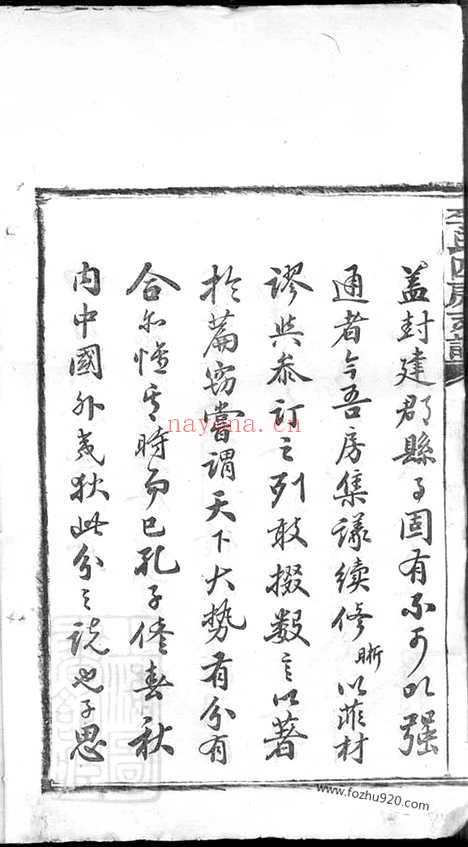 李氏四房支譜
蓋封建郡縣事固有不可以強
通者今吾房集議續修晰以菲材
謬與參订之列敢掇数言以著
於篇窃嘗謂天下大势有分有
合亦惟其時而已孔子修春秋
内中國外夷狄此分之説也子思
nayona.cn
www.fozhu920.com